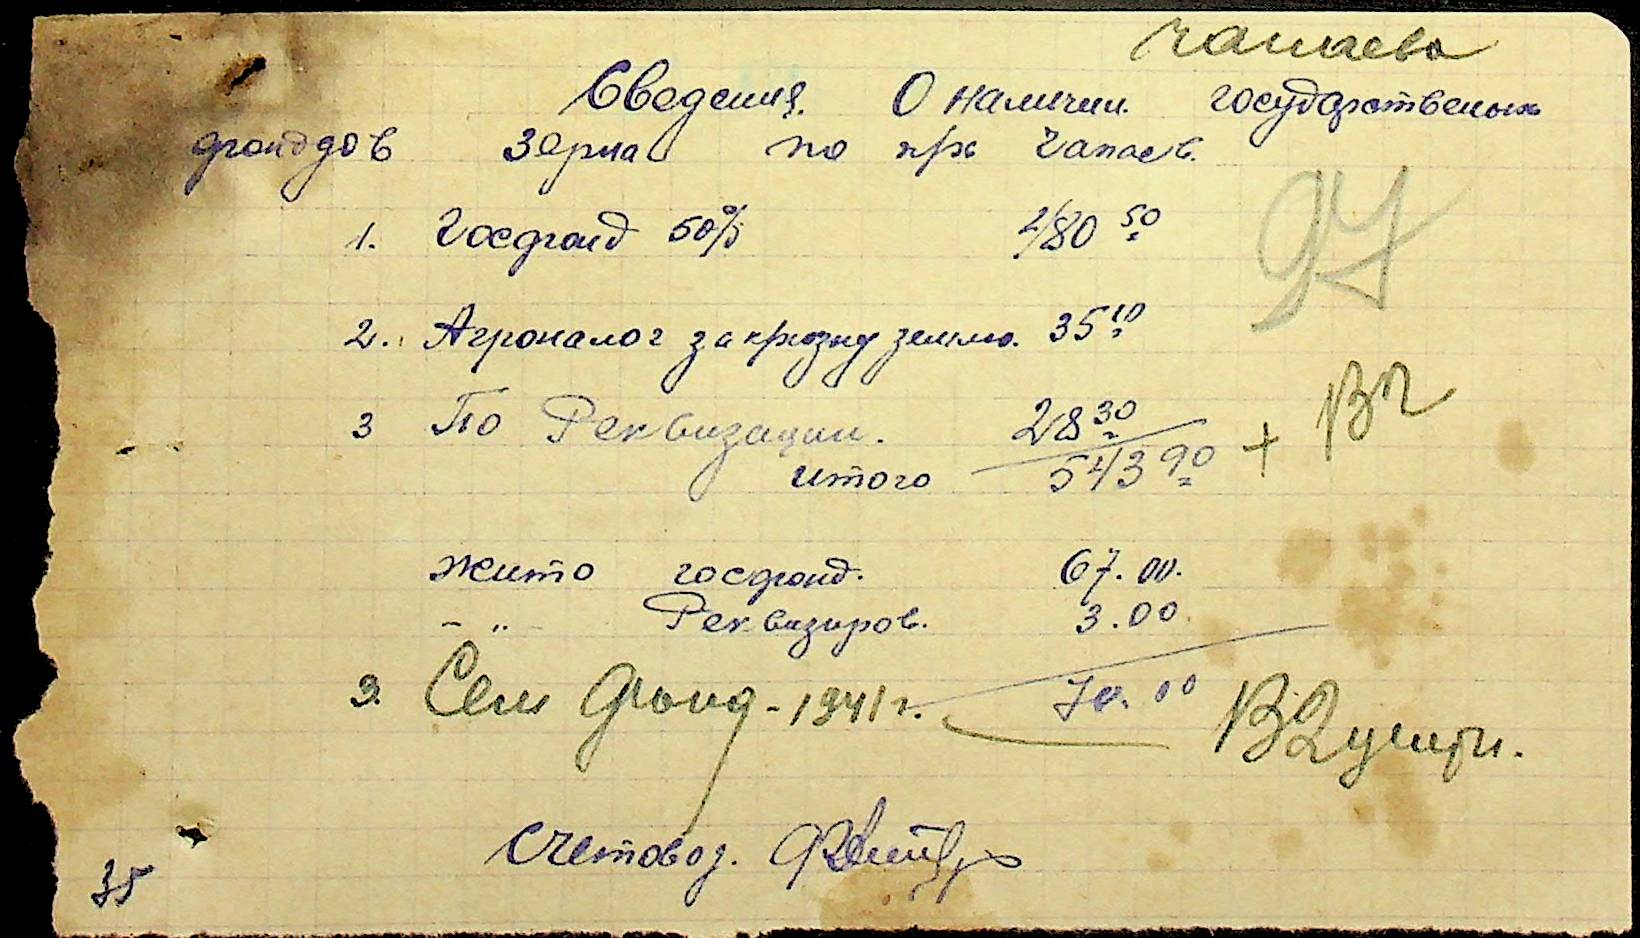 Чапаева
Сведения О наличии государственых
фонддов зерна по крх Чапаев.
1. Госфонд 50% 480 50
2. Агроналог за землю. 35 10
3 По Реквизации. 28 30
итого 543 90 +
жито госфонд. 67.00.
- " - Реквизиров. 3.00
3. Сем Фонд - 1941 г. 70.00
Счетовод.
35